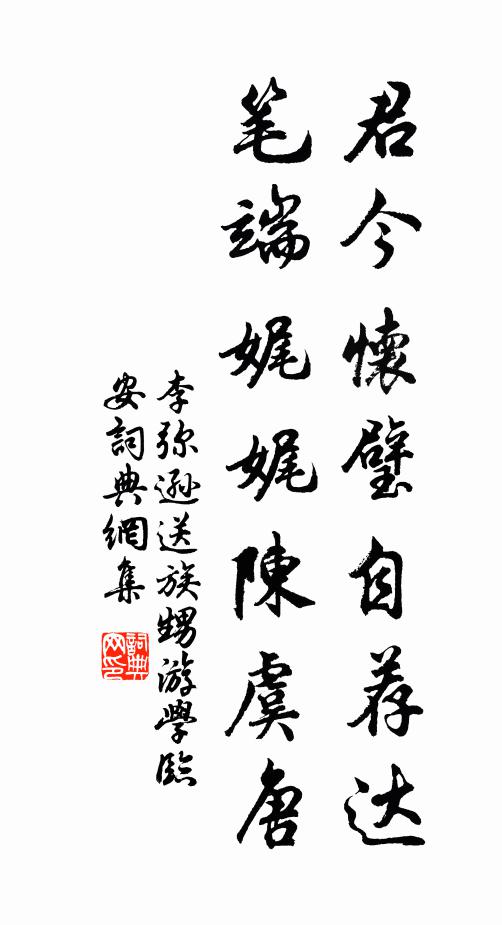 君今懷璧自荐达
笔端娓娓陳虞唐
李弥遜送族甥游學臨
安詞典網集
詞典
网印